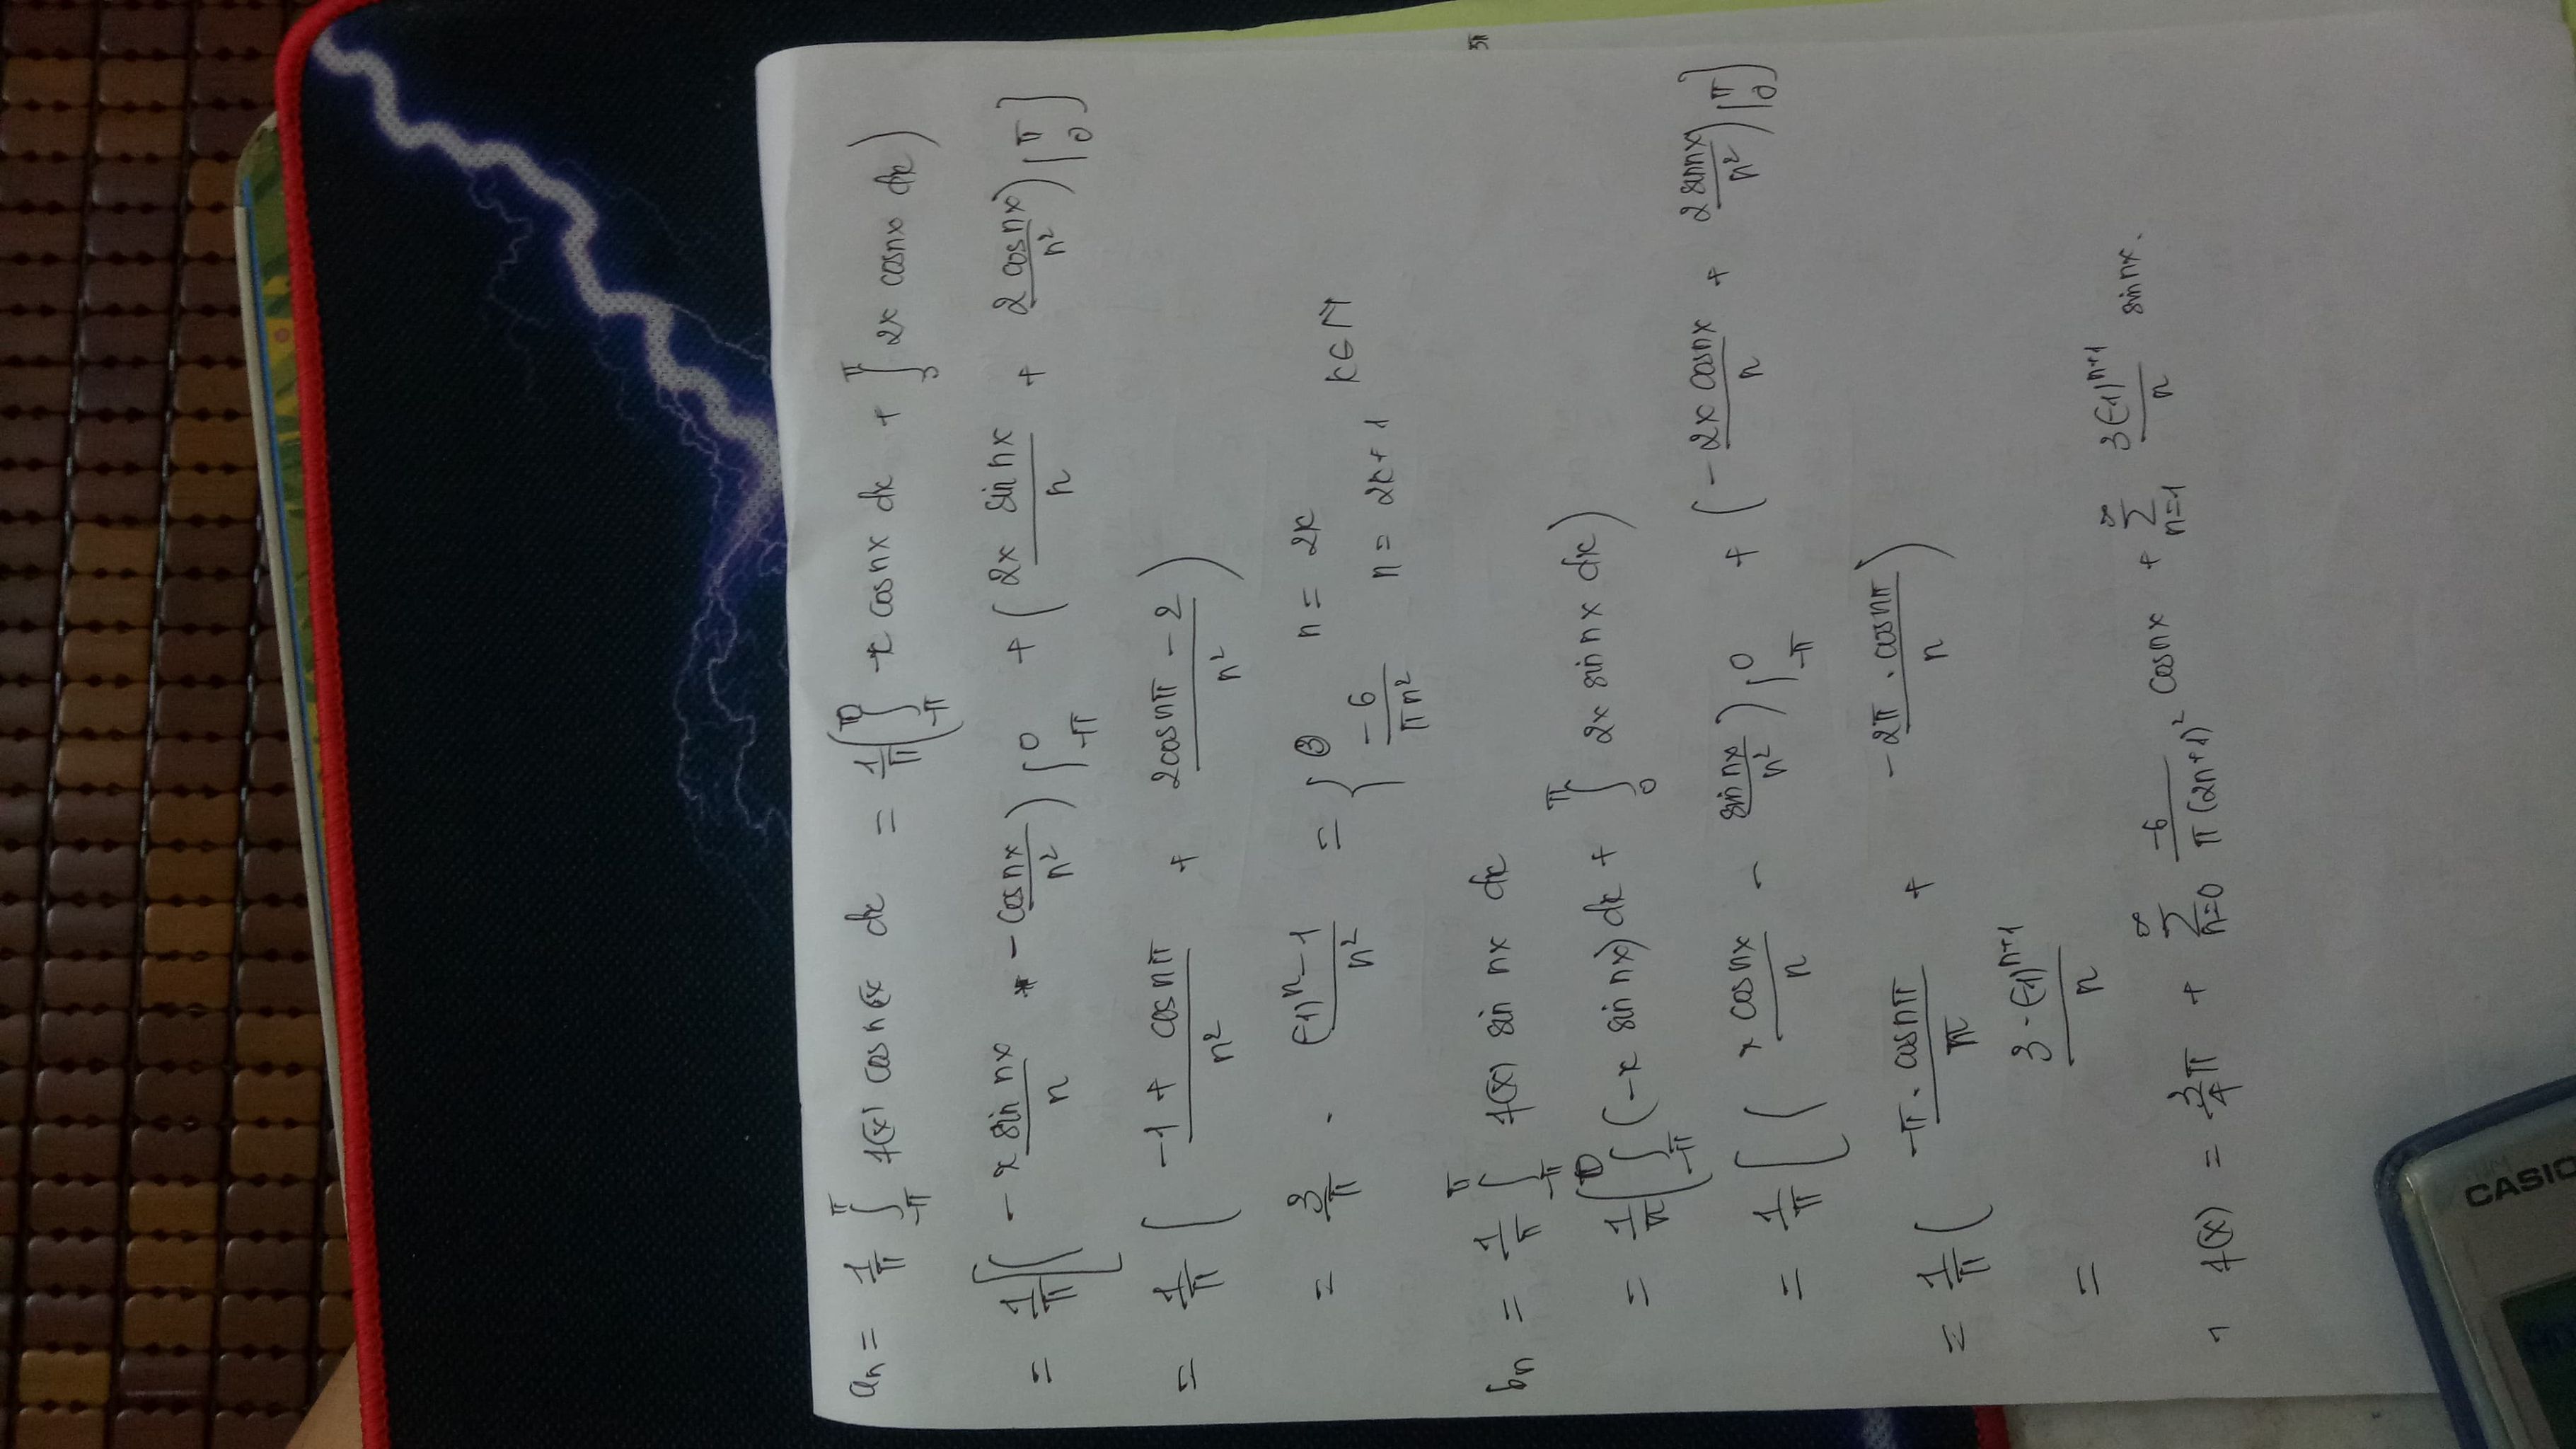 aₙ = 1/π ∫_{-π}^{π} f(x) cosnx dx = 1/π (∫_{-π}^{0} -x cosnx dx + ∫_{0}^{π} 2x cosnx dx)
= 1/π [(-x sin nx/n - cosnx/n²)|_{-π}^{0} + (2x sin nx/n + 2 cosnx/n²)|_{0}^{π}]
= 1/π [-1 + cosnπ/n² + 2cosnπ - 2/n²)
= 3/π . (-1)ⁿ - 1/n² = { 0 n = 2k
-6/πn² n = 2k + 1 k ∈ N
bₙ = 1/π ∫_{-π}^{π} f(x) sin nx dx
= 1/π (∫_{-π}^{0} (-x sin nx) dx + ∫_{0}^{π} 2x sin nx dx)
= 1/π [(x cosnx/n - sin nx/n²)|_{-π}^{0} + (-2x cosnx/n + 2 sinnx/n²)|_{0}^{π}]
= 1/π (-π . cosnπ/n + -2π . cosnπ/n)
= 3 . (-1)ⁿ⁺¹/n
f(x) = 3/4 π + ∑_{n=0}^{∞} -6/π(2n+1)² cosnx + ∑_{n=1}^{∞} 3(-1)ⁿ⁺¹/n sin nx.
CASIO